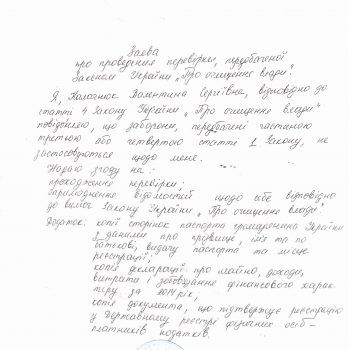 Заява
про проведення перевірки, передбаченої
Законом України „Про очищення влади".
Я, Колотнюк Валентина Сергіївна, відповідно до
статті 4 Закону України „Про очищення влади"
повідомляю, що заборони, передбачені частиною
третьою або четвертою статті 1 Закону, не
застосовуються щодо мене.
Надаю згоду на:
проходження перевірки;
оприлюднення відомостей щодо себе відповідно
до вимог Закону України „Про очищення влади".
Додаток: копії сторінок паспорта громадянина України
з даними про прізвище, ім'я та по
батькові, видачу паспорта та місце
реєстрації;
копія декларації про майно, доходи,
витрати і зобов'язання фінансового харак-
теру за 2014 рік,
копія документа, що підтверджує реєстрацію
у Державному реєстрі фізичних осіб -
платників податків.